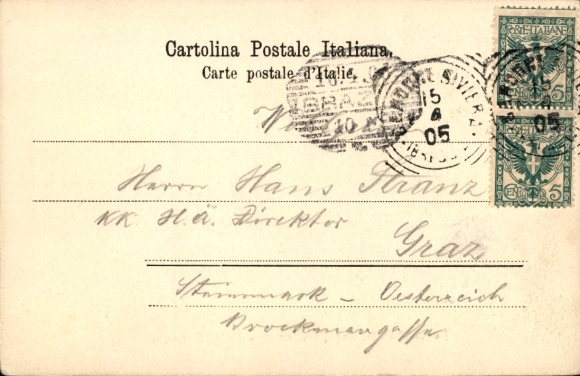 Cartolina Postale Italiana.
Carte postale d'Italie.
POSTE ITALIANE
15
4
05
GRAZ
Herrn Hans Stranz
KK. H. Ä. Direktor
Graz
Steiermark – Oesterreich
Brockmanngasse
5
05
5